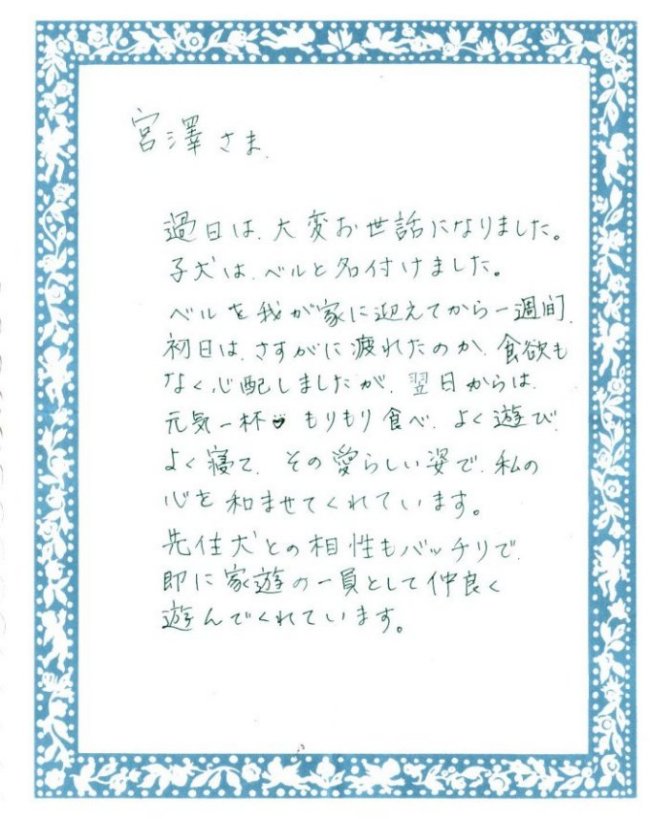 宮澤さま.
過日は、大変お世話になりました。
子犬は、ベルと名付けました。
ベルを我が家に迎えてから一週間、
初日は、さすがに疲れたのか、食欲も
なく、心配しましたが、翌日からは、
元気一杯♥もりもり食べ、よく遊び、
よく寝て、その愛らしい姿で、私の
心を和ませてくれています。
先住犬との相性もバッチリで、
即に家遊の一員として仲良く
遊んでくれています。